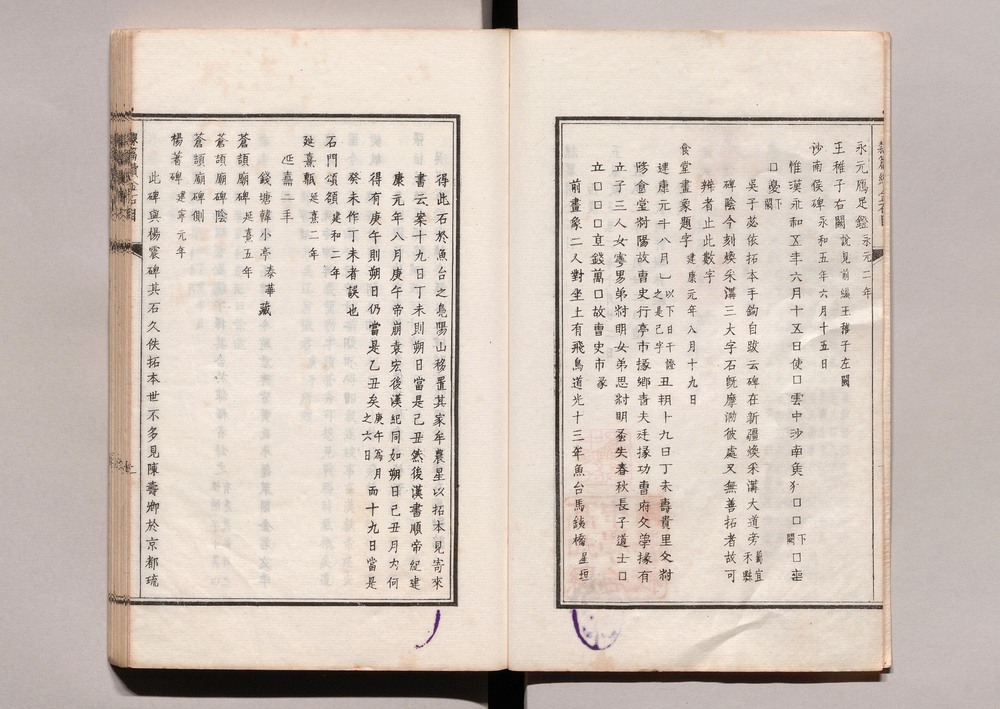 永元雁足鐙 永元二年
王稚子右闕 說見前編王稚子左闕
沙南侯碑 永和五年六月十五日
惟漢永和五年六月十五日使口雲中沙南矦犭口口闕下口
口憂闕下
吳子苾依拓本手鉤自跋云碑在新疆煥采溝大道旁 宜禾縣
碑陰今刻煥采溝三大字石旣摩泐彼處又無善拓者故可
辨者止此數字
食堂畫象題字 建康元年八月十九日
建康元年八月乚 以下日干證之是己字 丑朔十九日丁未壽貴里文㝊
修食堂㝊陽故曹史行亭市掾鄉嗇夫廷掾功曹府文學掾有
立子三人女寧男弟㝊明女弟思㝊明蚤失春秋長子道士口
立口口口直錢萬口故曹史市掾
前畫象二人對坐上有飛鳥道光十三年魚台馬 橋 星垣
得此石於魚台之鳧陽山移置其家牟農星以拓本見寄來
書云案十九日丁未則朔日當是己丑然後漢書順帝紀建
康元年八月庚午帝崩袁宏後漢紀同如朔日己丑月內何
得有庚午則朔日仍當是乙丑矣 庚午爲月之六日 而十九日當是
癸未作丁未者誤也
石門頌額 建和二年
延熹甎 延熹二年
延熹二年
錢塘韓小亭泰華藏
蒼頡廟碑 延熹五年
蒼頡廟碑陰
蒼頡廟碑側
楊著碑 建寧元年
此碑與楊震碑其石久佚拓本世不多見陳壽卿於京都琉